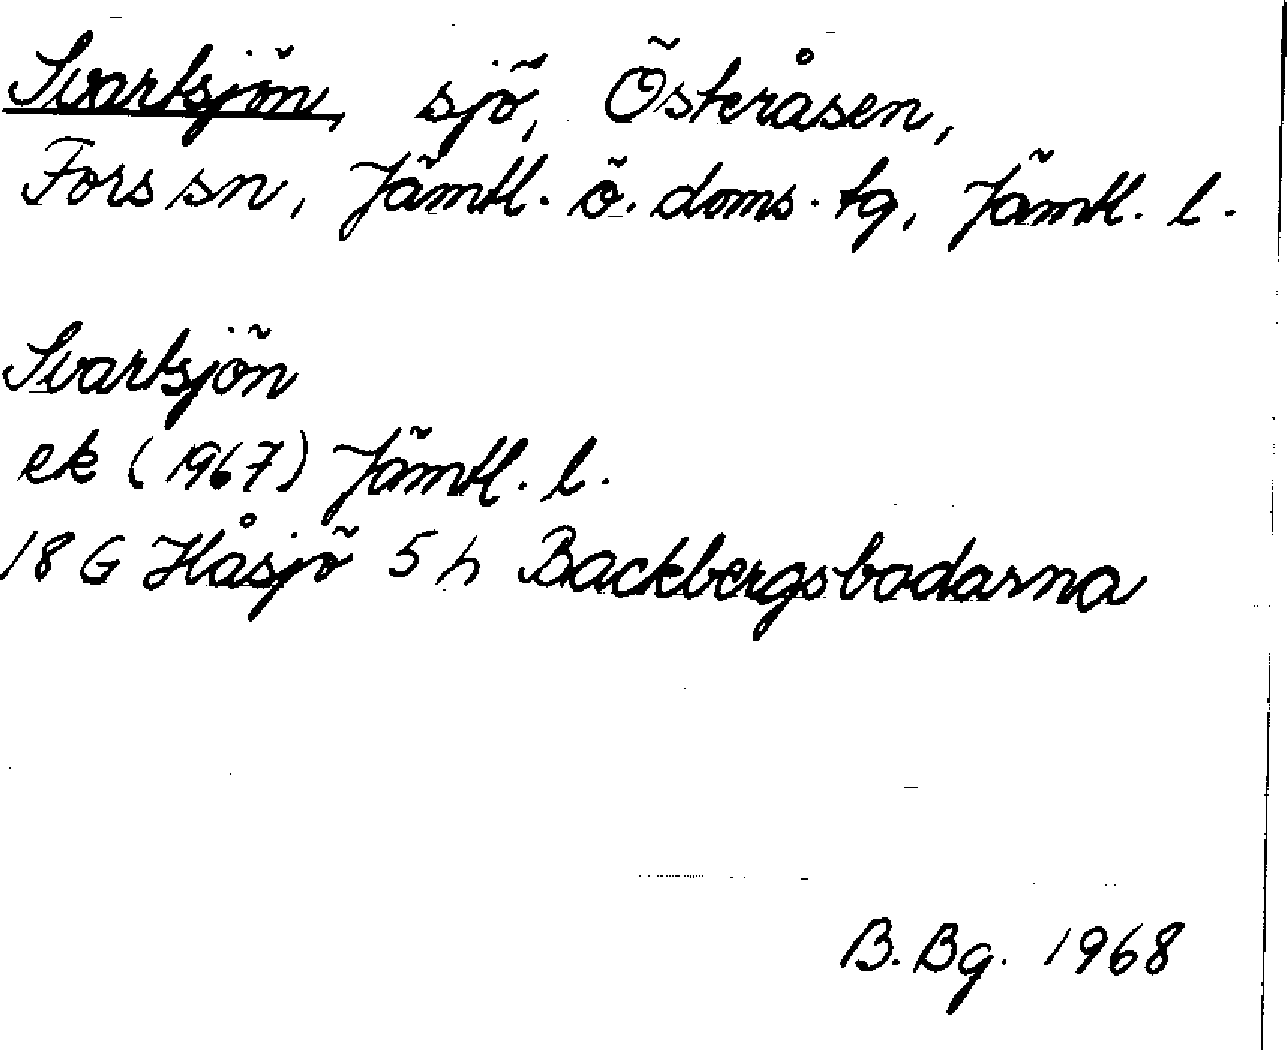 Svartsjön, sjö, Österåsen,
Fors sn, Jämtl. ö. doms. tg, Jämtl. l.
Svartsjön
ek (1967) Jämtl. l.
18 G Håsjö 5 h Backbergsbodarna
B. Bg. 1968